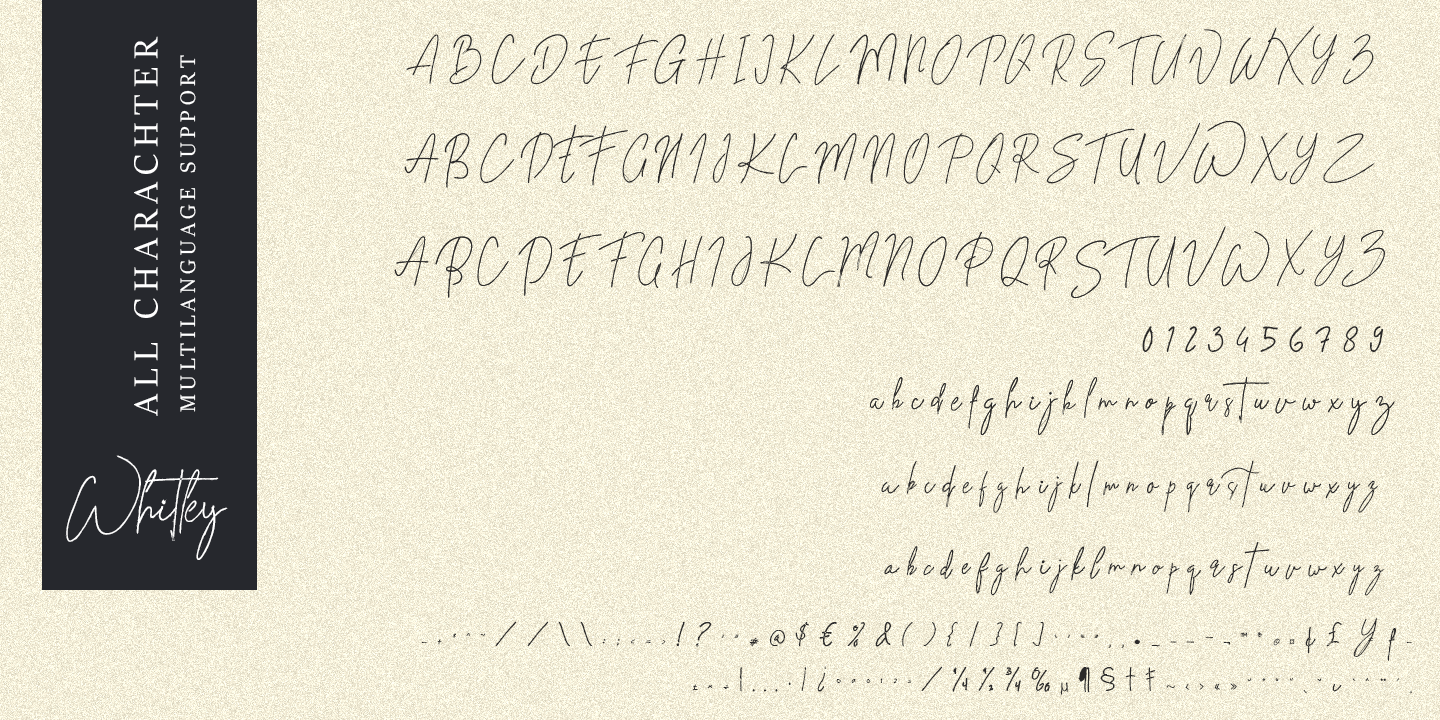 ALL CHARACHTER
MULTILANGUAGE SUPPORT
Whitley
A B C D E F G H I J K L M N O P Q R S T U V W X Y Z
A B C D E F G H I J K L M N O P Q R S T U V W X Y Z
A B C D E F G H I J K L M N O P Q R S T U V W X Y Z
0 1 2 3 4 5 6 7 8 9
a b c d e f g h i j k l m n o p q r s t u v w x y z
a b c d e f g h i j k l m n o p q r s t u v w x y z
a b c d e f g h i j k l m n o p q r s t u v w x y z
/ / \ \ : ; < = > ! ? # @ $ € % & ( ) { | } [ ] • ¢ £ ¥ ƒ
¿ / ¼ ½ ¾ ‰ µ ¶ § † ‡ ~ ‹ › « »